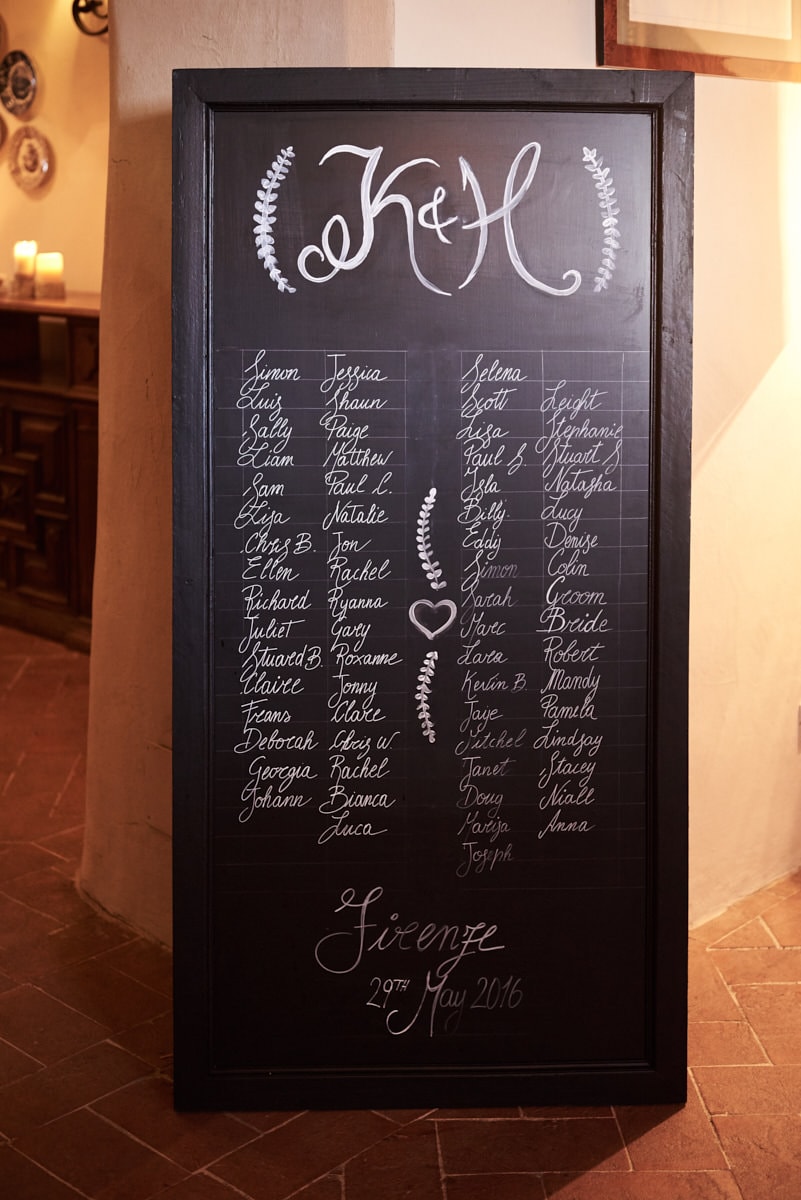 K & H
Simon Jessica
Luis Shaun
Sally Paige
Liam Matthew
Sam Paul L.
Lisa Natalie
Chris B. Jon
Ellen Rachel
Richard Ryanna
Juliet Gary
Stuard B. Roxanne
Claire Jonny
Frans Clare
Deborah Chris W
Georgia Rachel
Johann Bianca
Luca
Selena
Scott Leight
Lisa Stephanie
Paul S. Stuart S
Isla Natasha
Billy Lucy
Eddy Denise
Simon Colin
Sarah Groom
Marc Bride
Lara Robert
Kevin B. Mandy
Jaye Pamela
Lindsay
Janet Stacey
Doug Niall
Marija Anna
Joseph
Firenze
29TH May 2016